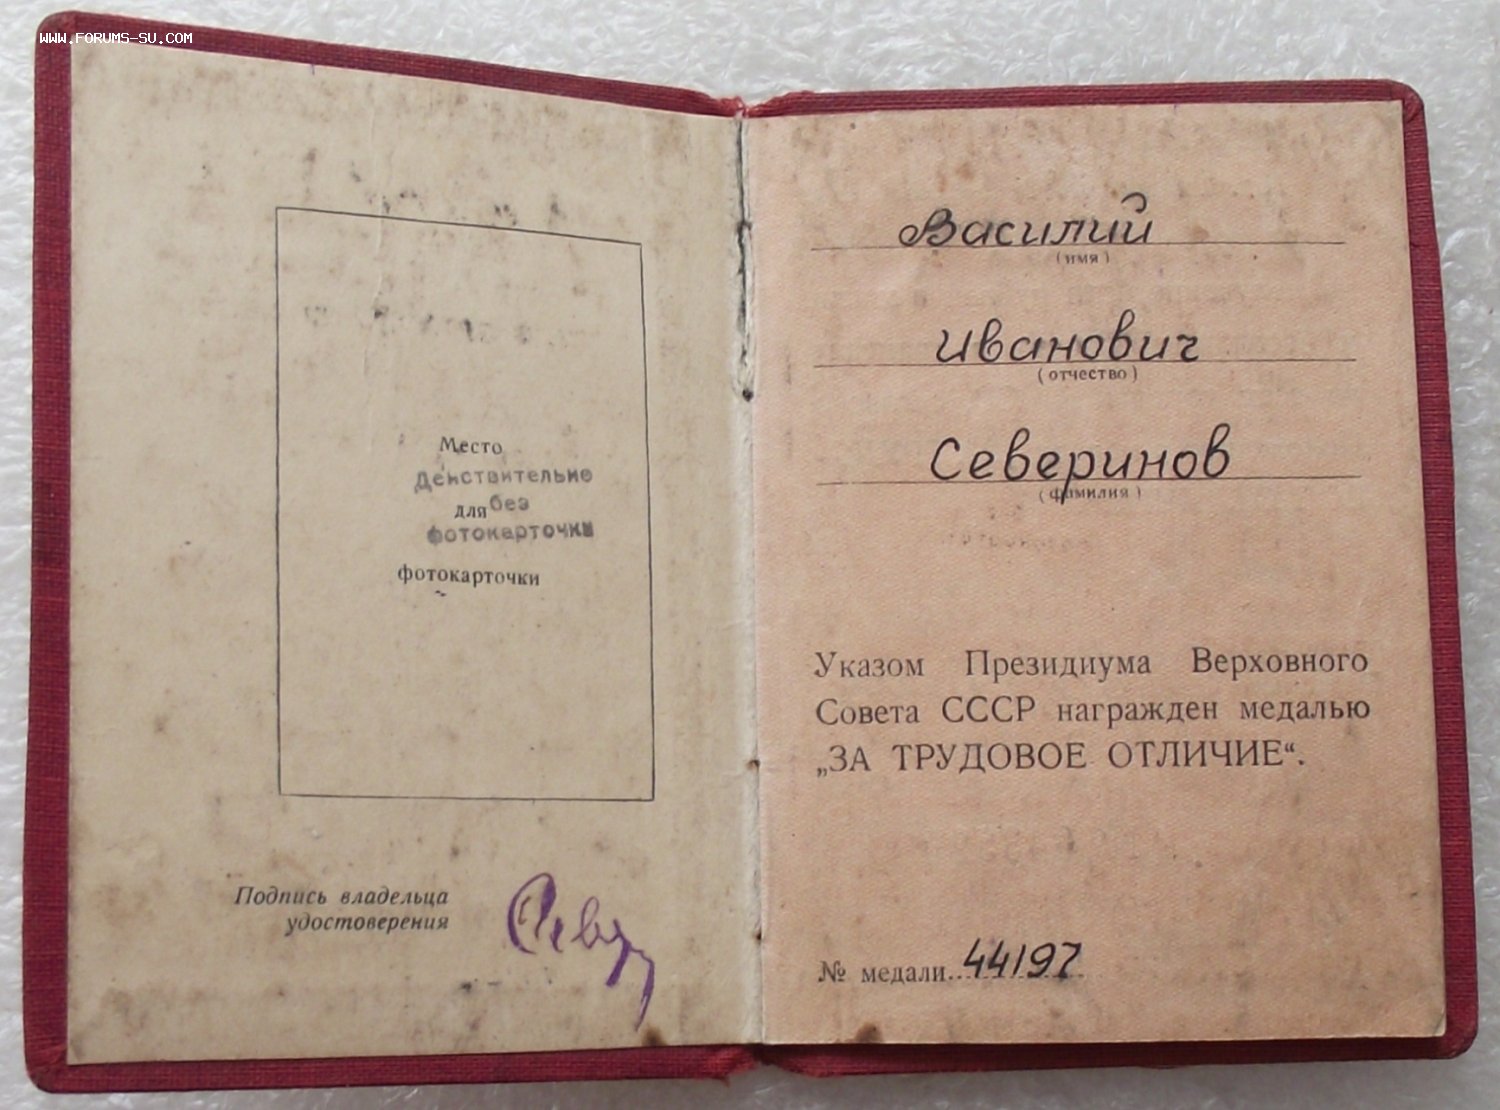 WWW.FORUMS-SU.COM
Место
Действительно
для без
фотокарточки
фотокарточки
Подпись владельца
удостоверения
Василий
(имя)
Иванович
(отчество)
Северинов
(фамилия)
Указом Президиума Верховного
Совета СССР награжден медалью
„ЗА ТРУДОВОЕ ОТЛИЧИЕ“.
№ медали...44197